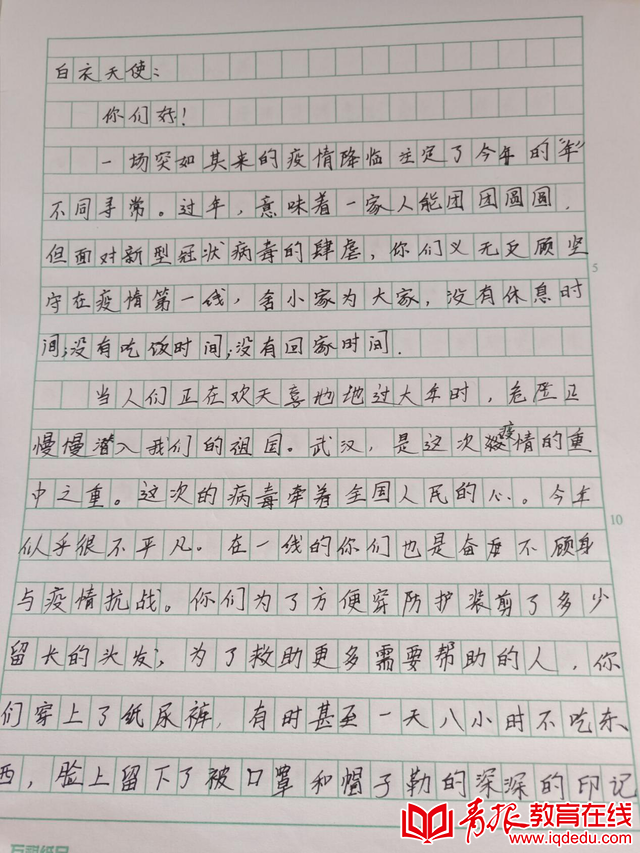 白衣天使:
你们好!
一场突如其来的疫情降临注定了今年的“年”
不同寻常。过年,意味着一家人能团团圆圆.
但面对新型冠状病毒的肆虐,你们义无反顾坚
守在疫情第一线,舍小家为大家,没有休息时
间;没有吃饭时间;没有回家时间.
当人们正在欢天喜地地过大年时,危险正
慢慢潜入我们的祖国。武汉,是这次疫情的重
中之重。这次的病毒牵着全国人民的心。今年
似乎很不平凡。在一线的你们也是奋不顾身
与疫情抗战。你们为了方便穿防护装剪了多少
留长的头发,为了救助更多需要帮助的人,你
们穿上了纸尿裤,有时甚至一天八小时不吃东
西,脸上留下了被口罩和帽子勒的深深的印记
5
10
青报教育在线
www.iqdedu.com